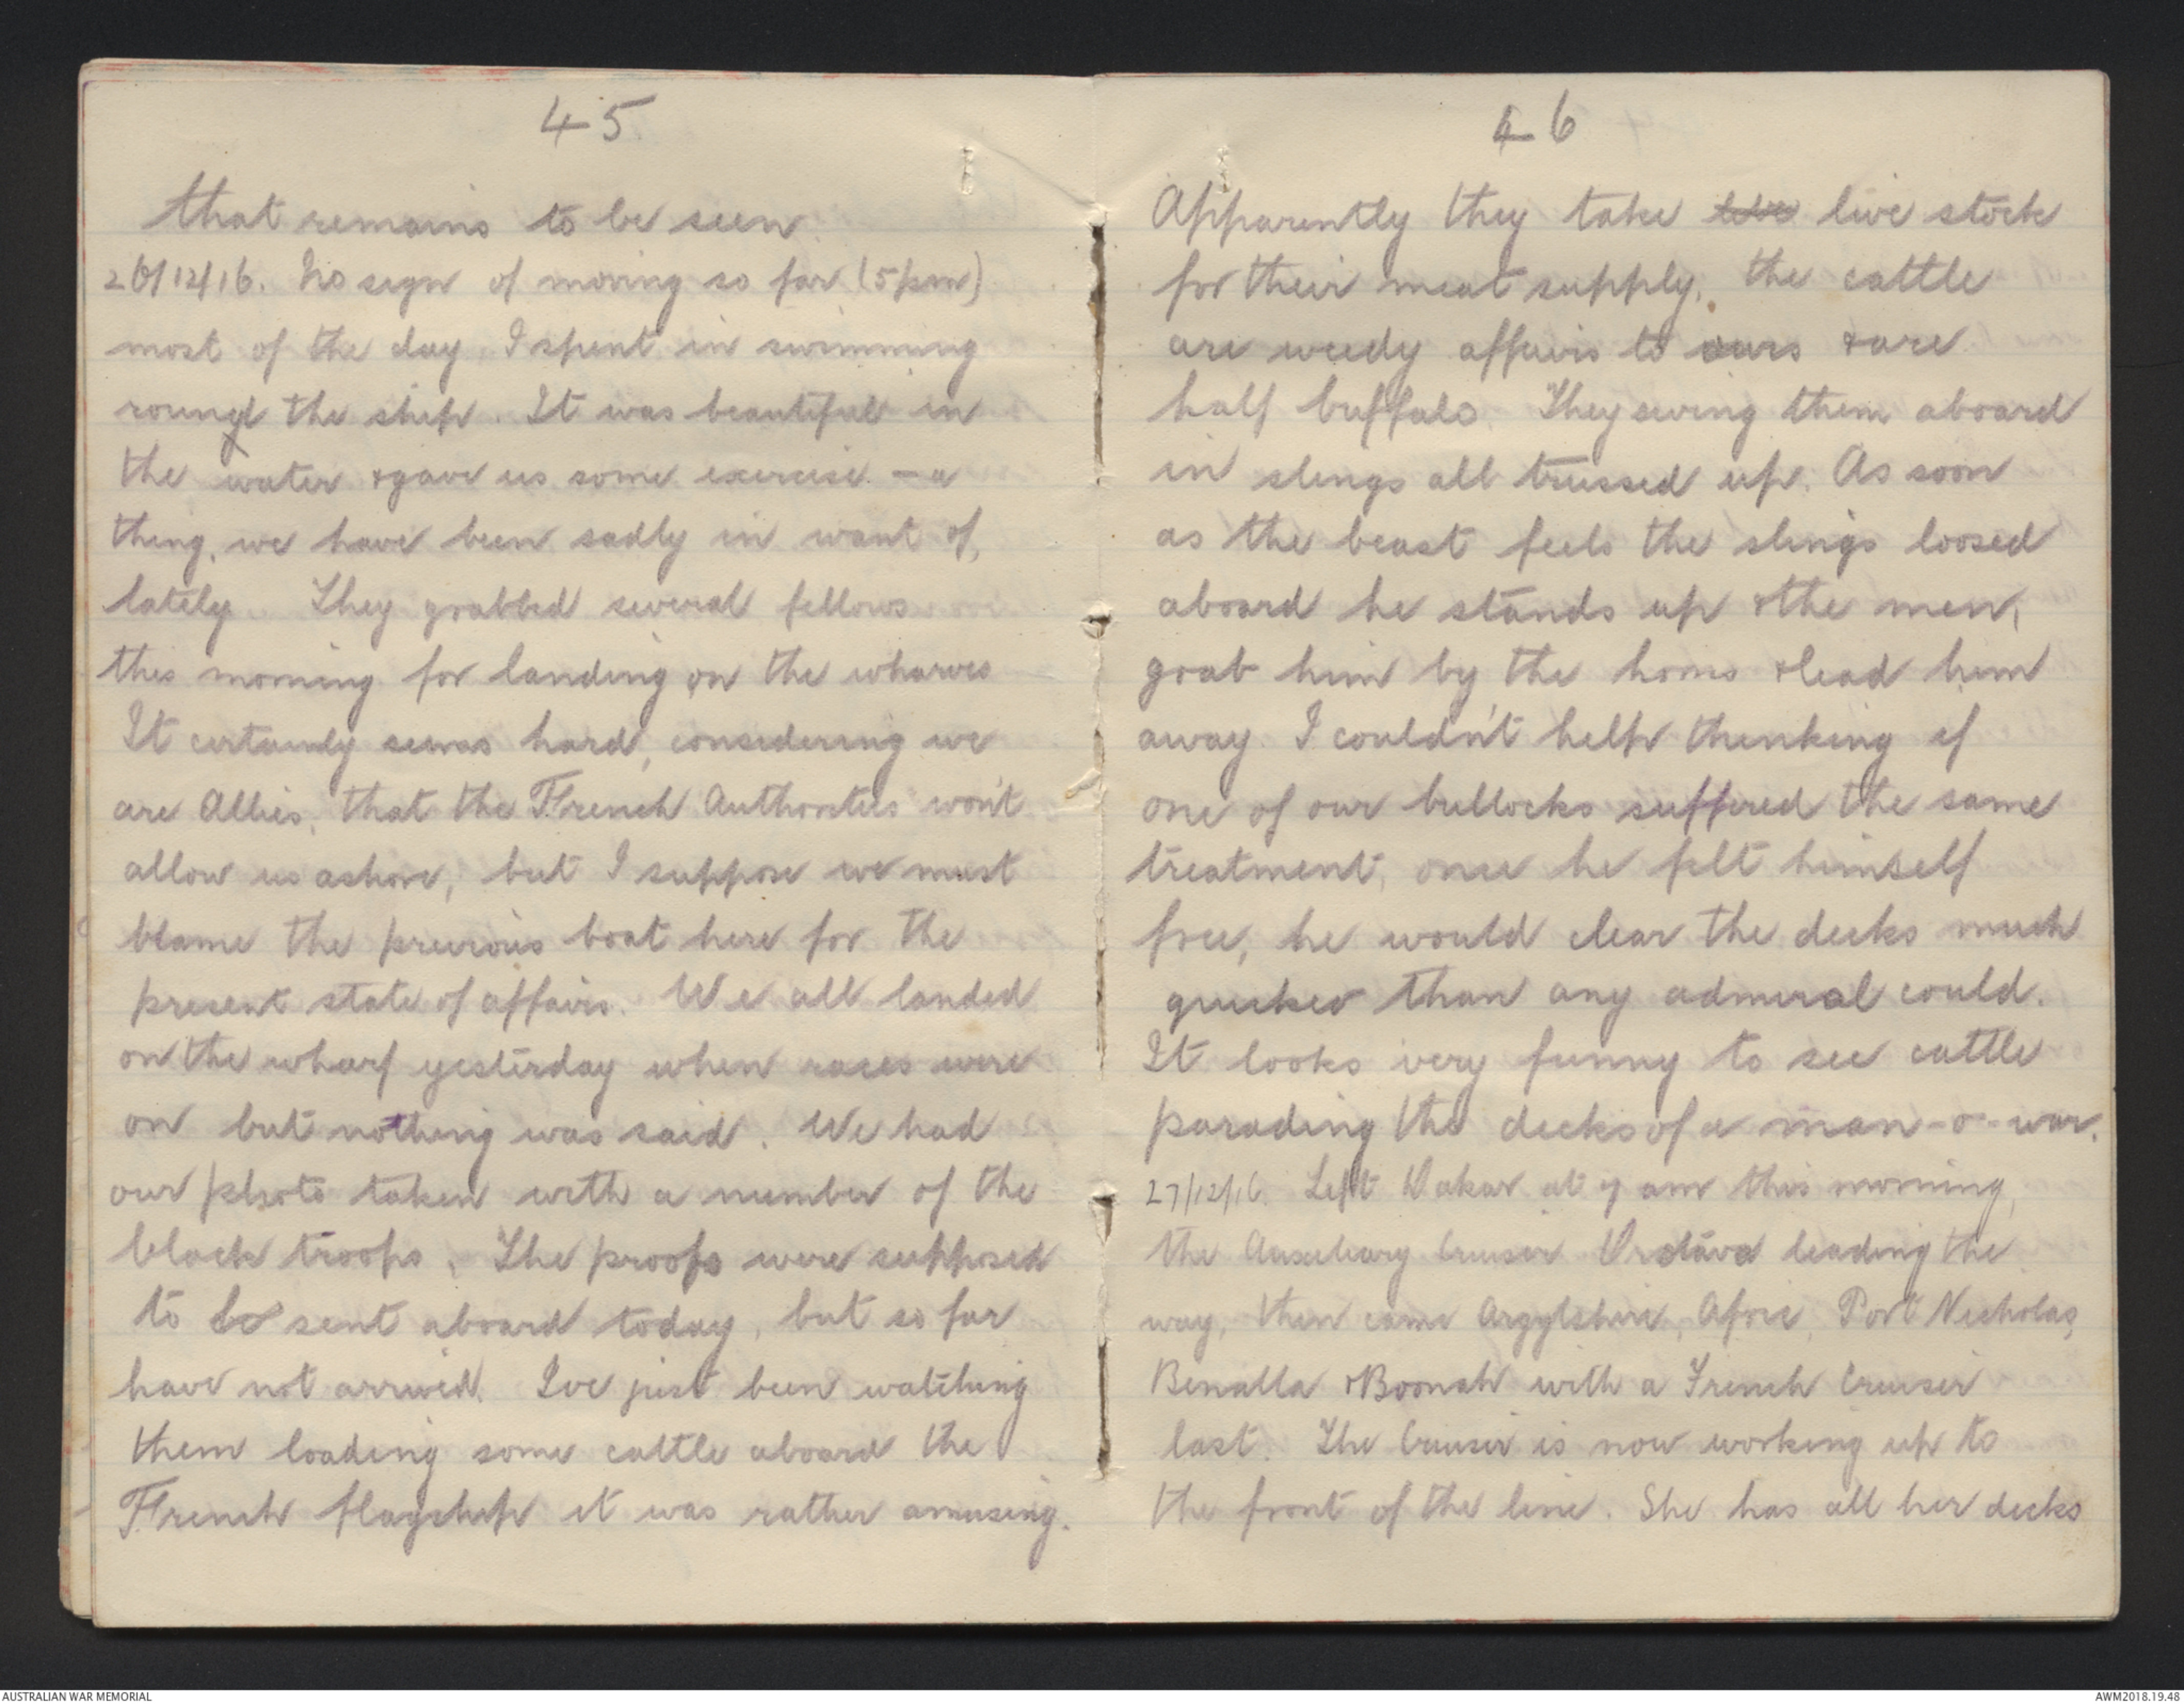 45
that remains to be seen
26/12/16. No sign of moving so far (5pm)
most of the day, I spent in swimming
round the ship. It was beautiful in
the water & gave us some exercise - a
thing, we have been sadly in want of,
lately. They grabbed several fellows
this morning for landing on the wharves
It certainly seems hard, considering we
are Allies, that the French Authorities won't
allow us ashore, but I suppose we must
blame the previous boat here for the
present state of affairs. We all landed
on the wharf yesterday when races were
on but nothing was said. We had
our photo taken with a number of the
black troops. The proofs were supposed
to be sent aboard today, but so far
have not arrived. Ive just been watching
them loading some cattle aboard the
French flagship it was rather amusing.
46
Apparently they take live live stock
for their meat supply. the cattle
are weedy affairs to ours & are
half buffalo. They swing them aboard
in slings all trussed up. As soon
as the beast feels the slings loosed
aboard he stands up & the men,
grab him by the horns & lead him
away. I couldn't help thinking if
one of our bullocks suffered the same
treatment, once he felt himself
free, he would clear the decks much
quicker than any admiral could.
It looks very funny to see cattle
parading the decks of a man-o-war.
27/12/16. Left Dakar at 7 am this morning,
the Auxiliary Cruiser Orotava leading the
way, then came Argylshire, Afric, Port Nicholas,
Benalla & Boonah with a French Cruiser
last. The Cruiser is now working up to
the front of the line. She has all her decks
AUSTRALIAN WAR MEMORIAL
AWM2018.19.48